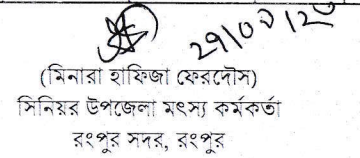 29/09/20
(মিনারা হাফিজা ফেরদৌস)
সিনিয়র উপজেলা মৎস্য কর্মকর্তা
রংপুর সদর, রংপুর